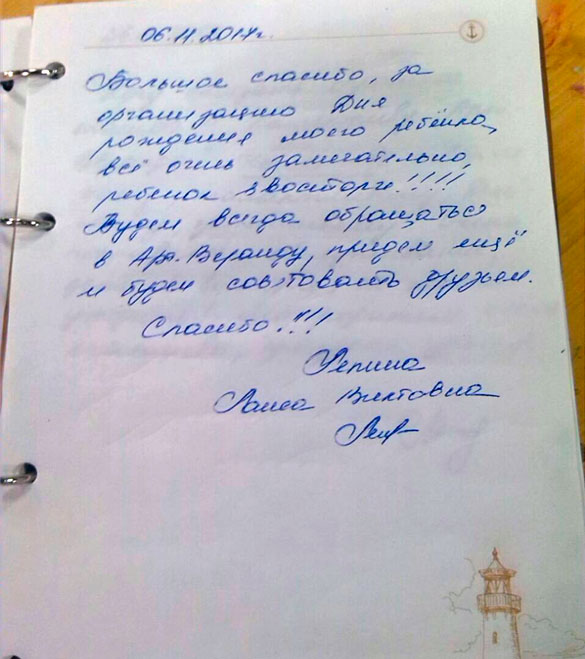 06.11.2017г.
Большое спасибо, за
организацию Дня
рождения моего ребёнка,
всё очень замечательно,
ребенок в восторге!!!!
Будем всегда обращаться
в Арт. Веранду, придем ещё
и будем советовать друзьям.
Спасибо!!!
Репина